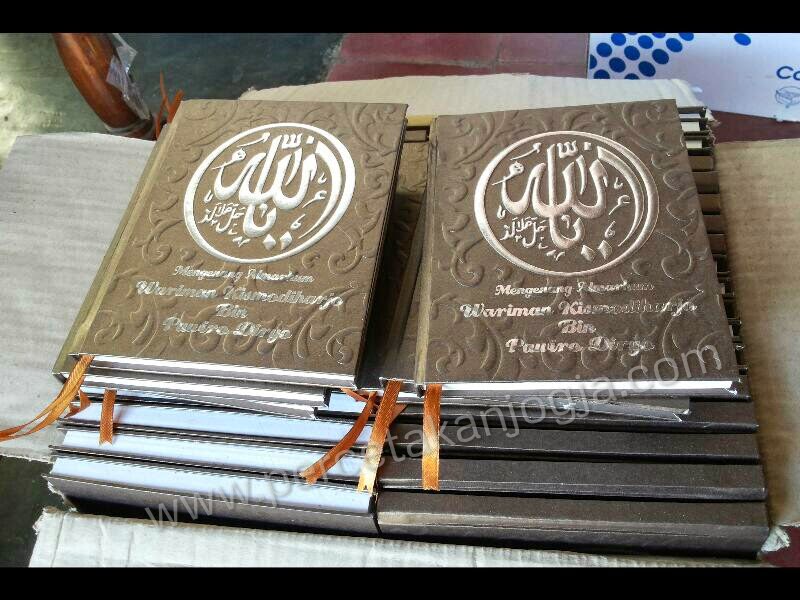 يا الله
جل جلاله
Mengenang Almarhum
Wariman Kismodiharjo
Bin
Pawiro Diryo
يا الله
جل جلاله
Mengenang Almarhum
Wariman Kismodiharjo
Bin
Pawiro Diryo
www.percetakanjogja.com